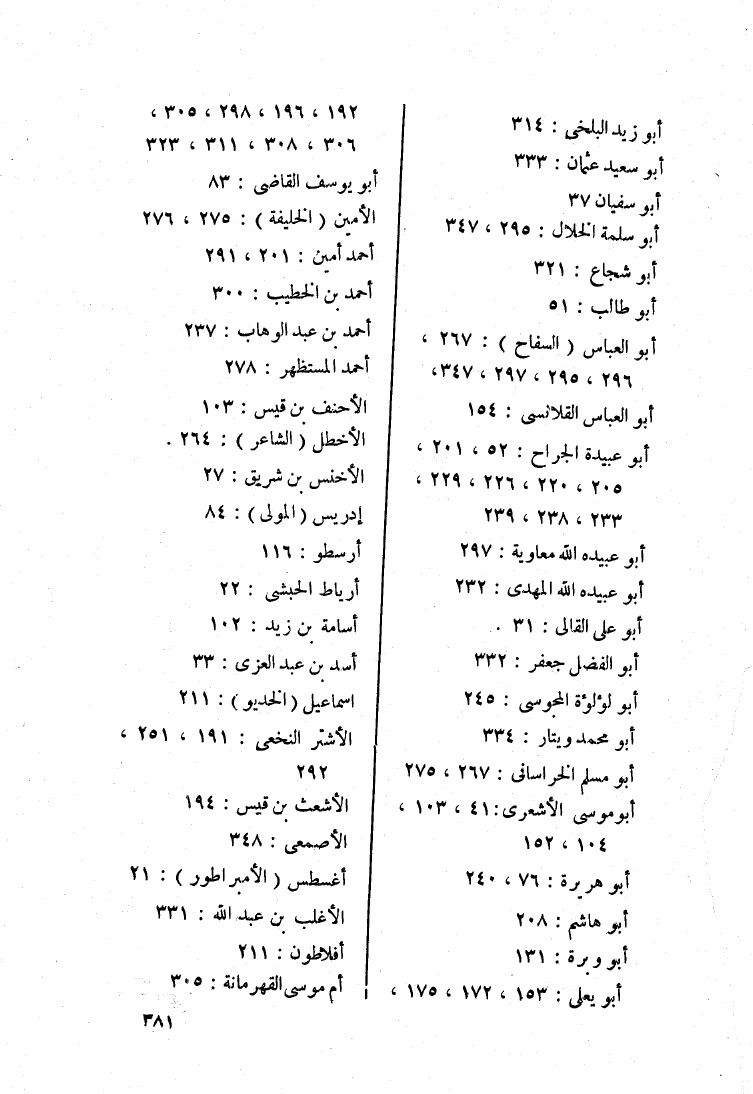 أبو زيد البلخى : ٣١٤
أبو سعيد عثمان : ٣٣٣
أبو سفيان ٣٧
أبو سلمة الخلال : ٢٩٥ ، ٣٤٧
أبو شجاع : ٣٢١
أبو طالب : ٥١
أبو العباس ( السفاح ) : ٢٦٧ ،
٢٩٦ ، ٢٩٥ ، ٢٩٧ ، ٣٤٧،
أبو العباس القلانسى : ١٥٤
أبو عبيدة الجراح : ٥٢ ، ٢٠١ ،
٢٠٥ ، ٢٢٠ ، ٢٢٦ ، ٢٢٩ ،
٢٣٣ ، ٢٣٨ ، ٢٣٩
أبو عبيده الله معاوية : ٢٩٧
أبو عبيده الله المهدى : ٢٣٢
أبو على القالى : ٣١ .
أبو الفضل جعفر : ٣٣٢
أبو لولوة المجوسى : ٢٤٥
أبو محمد ويتار : ٣٣٤
أبو مسلم الخراسانى : ٢٦٧ ، ٢٧٥
أبو موسى الأشعرى : ٤١ ، ١٠٣ ،
١٠٤ ، ١٥٢
أبو هريرة : ٧٦ ، ٢٤٠
أبو هاشم : ٢٠٨
أبو وبرة : ١٣١
أبو يعلى : ١٥٣ ، ١٧٢ ، ١٧٥ ،
١٩٢ ، ١٩٦ ، ٢٩٨ ، ٣٠٥ ،
٣٠٦ ، ٣٠٨ ، ٣١١ ، ٣٢٣
أبو يوسف القاضى : ٨٣
الأمين ( الخليفة ) : ٢٧٥ ، ٢٧٦
أحمد أمين : ٢٠١ ، ٢٩١
أحمد بن الخطيب : ٣٠٠
أحمد بن عبد الوهاب : ٢٣٧
أحمد المستظهر : ٢٧٨
الأحنف بن قيس : ١٠٣
الأخطل ( الشاعر ) : ٢٦٤ .
الأخنس بن شريق : ٢٧
إدريس ( المولى ) : ٨٤
أرسطو : ١١٦
أرياط الحبشى : ٢٢
أسامة بن زيد : ١٠٢
أسد بن عبد العزى : ٣٣
اسماعيل ( الخديو ) : ٢١١
الأشتر النخعى : ١٩١ ، ٢٥١ ،
٢٩٢
الأشعث بن قيس : ١٩٤
الأصمعى : ٣٤٨
أغسطس ( الأمبراطور ) : ٢١
الأغلب بن عبد الله : ٣٣١
أفلاطون : ٢١١
أم موسى القهرمانة : ٣٠٥
٣٨١